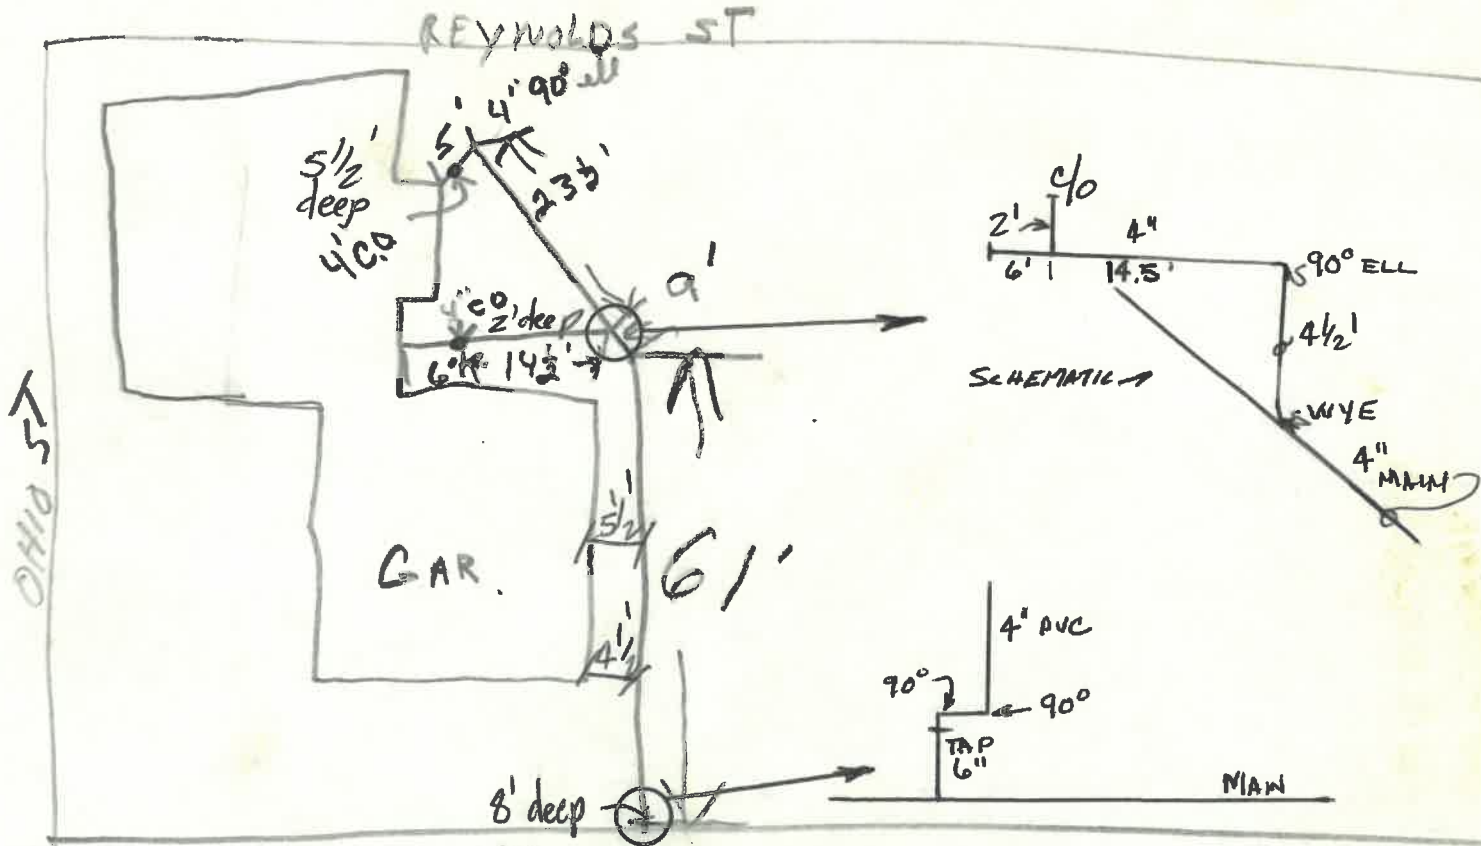 REYNOLDS ST
4' 90° ell
5'
5 1/2'
deep
4' C.O
23 1/2'
9'
4" CO 2' deep
6' 14 1/2'
OHIO ST
GAR.
5 1/2'
61'
4 1/2'
8' deep
C/O
2'
4"
6' 14.5'
90° ELL
4 1/2'
SCHEMATIC
WYE
4"
MAIN
4" PVC
90°
90°
TAP
6"
MAIN